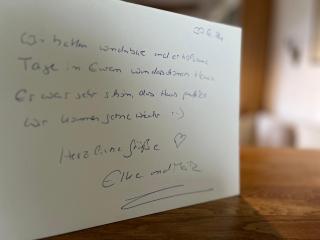 Wir hatten wunderbare und erholsame
Tage in Eurem wunderschönen Haus
Es war sehr schön, das Haus perfekt
wir kommen gerne wieder :-)
Herzliche Grüße ♡
Elke und